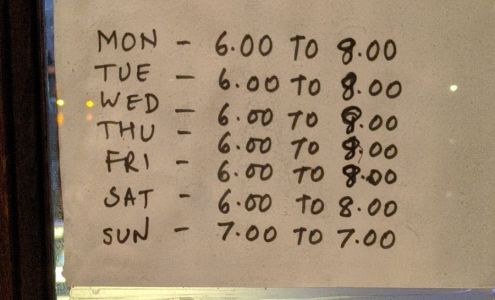 MON - 6.00 TO 8.00
TUE - 6.00 TO 8.00
WED - 6.00 TO 8.00
THU - 6.00 TO 8.00
FRI - 6.00 TO 8.00
SAT - 6.00 TO 8.00
SUN - 7.00 TO 7.00